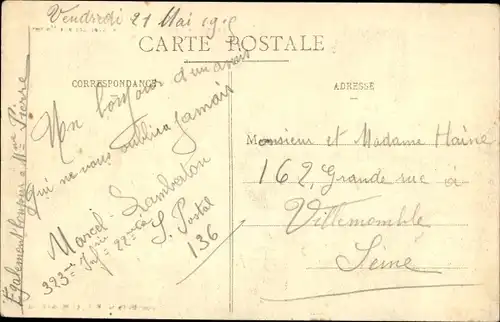 Vendredi 21 Mai 1915
CARTE POSTALE
CORRESPONDANCE
ADRESSE
Un bonjour d'un amis
qui ne vous oubliera jamais
Marcel Lamberton
323me Infrie 22me Cie
S. Postal
136
Également bonjour à Mme Pierre
Monsieur et Madame Haine
162, Grande rue à
Villemomble
Seine